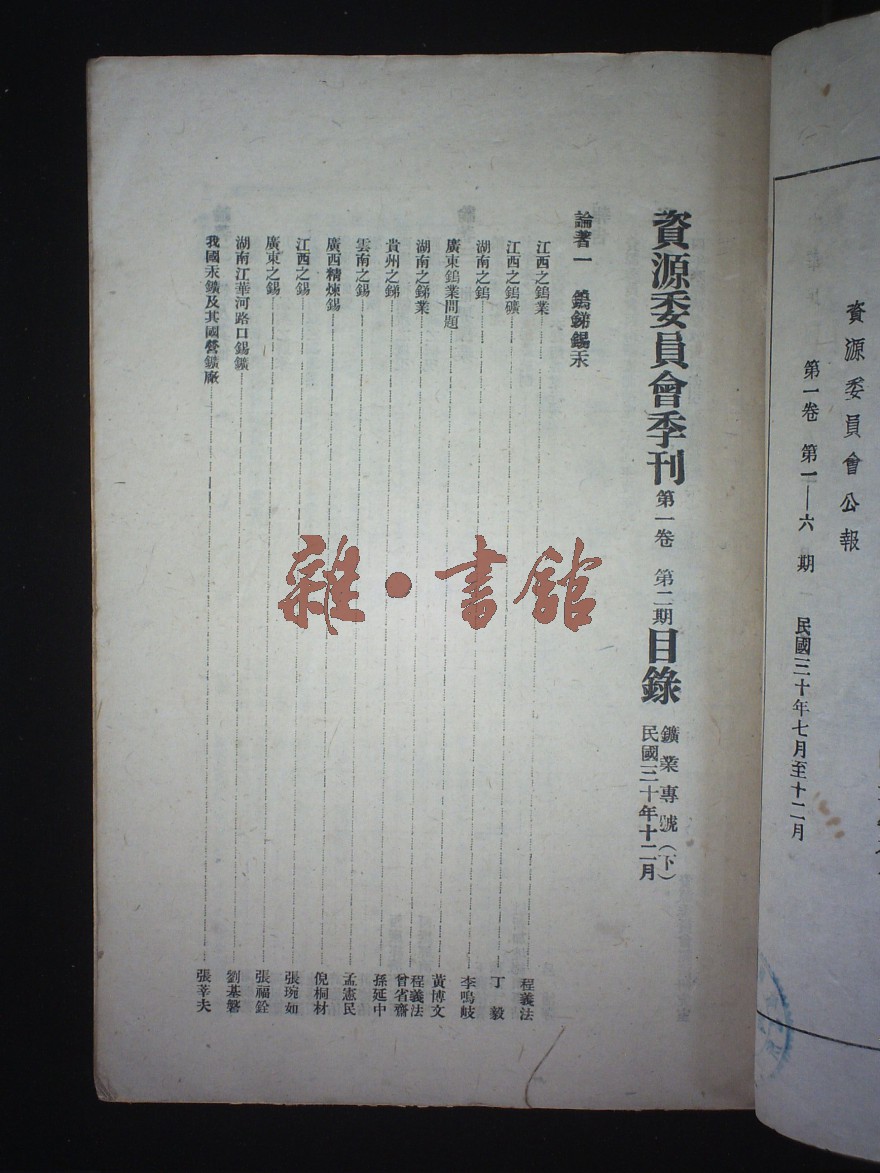 資源委員會公報
第一卷 第一—六期 民國三十年七月至十二月
資源委員會季刊 第一卷 第二期 目錄 鑛業專號(下)
民國三十年十二月
論著一 鎢銻錫汞
江西之鎢業 程義法
江西之鎢礦 丁毅
湖南之鎢 李鳴岐
廣東鎢業問題 黃博文
湖南之銻業 程義法 曾省齋
貴州之銻 孫延中
雲南之錫 孟憲民
廣西精煉錫 倪桐材
江西之錫 張琬如
廣東之錫 張福銓
湖南江華河路口錫鑛 劉基磐
我國汞鑛及其國營鑛廠 張莘夫
雜·書館